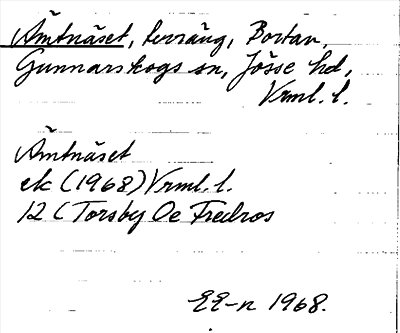 Åmtnäset, terräng, Bortan,
Gunnarskogs sn, Jösse hd,
Vrml. l.
Åmtnäset
ek (1968) Vrml. l.
12 C Torsby Öe Fredros
EE-n 1968.